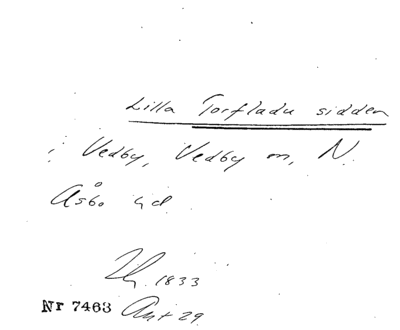 Lilla Torfladu sidden
i Vedby, Vedby sn, N.
Åsbo hd
1833
Nr 7463 Ant 29